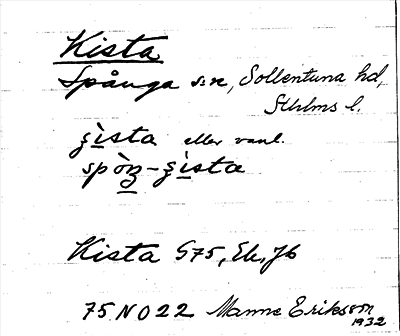 Kista
Spånga s:n, Sollentuna hd,
Sthlms l.
ꞩista eller vanl.
Kista G75, Ek, Jb
75 NO 22 Manne Eriksson
1932